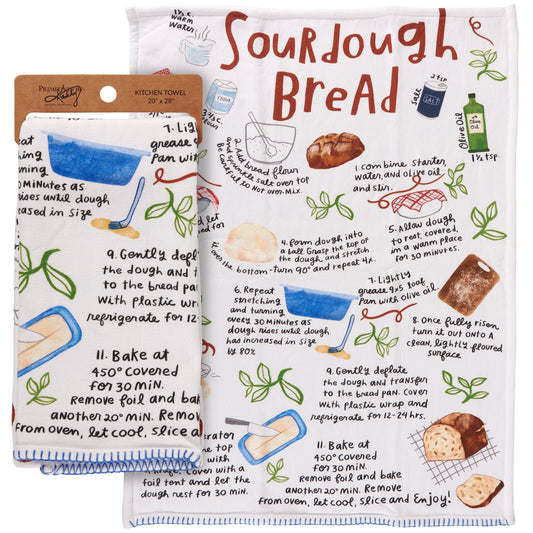 PRIMITIVES
Kathy
KITCHEN TOWEL
20" x 28"
7. Lightly
grease 9
Pan with
30 Minutes as
rises until dough
increased in Size
9. Gently deflate
the dough and t
to the bread pan.
With plastic wrap
refrigerate for 12-
11. Bake at
450° covered
for 30 min.
Remove foil and bak
another 20° min. Remov
From oven, let cool, slice a
Sourdough
Bread
1½ c.
warm
water
3¾ c.
flour
2 tsp
salt
SALT
Olive Oil
1½ tsp
1. combine starter,
water, and olive oil
and stir.
2. Add bread flour
and sprinkle salt over top
Be careful to Not over-Mix.
4. form dough into
a ball. Grasp the top of
the dough, and stretch
it over the bottom-turn 90° and repeat 4x.
5. Allow dough
to rest, covered,
in a warm place
for 30 minutes.
6. Repeat
stretching
and turning
every 30 Minutes as
dough rises until dough
has increased in Size
by 80%
7. Lightly
grease 9x5 loaf
Pan with olive oil.
8. Once fully risen
turn it out onto a
clean, lightly floured
surface.
9. Gently deflate
the dough and transfer
to the bread pan. Cover
with plastic wrap and
refrigerate for 12-24 hrs.
11. Bake at
450° covered
for 30 min.
Remove foil and bake
another 20° min. Remove
from oven, let cool, slice and Enjoy!
Cover with a
foil tent and let the
dough rest for 30 min.